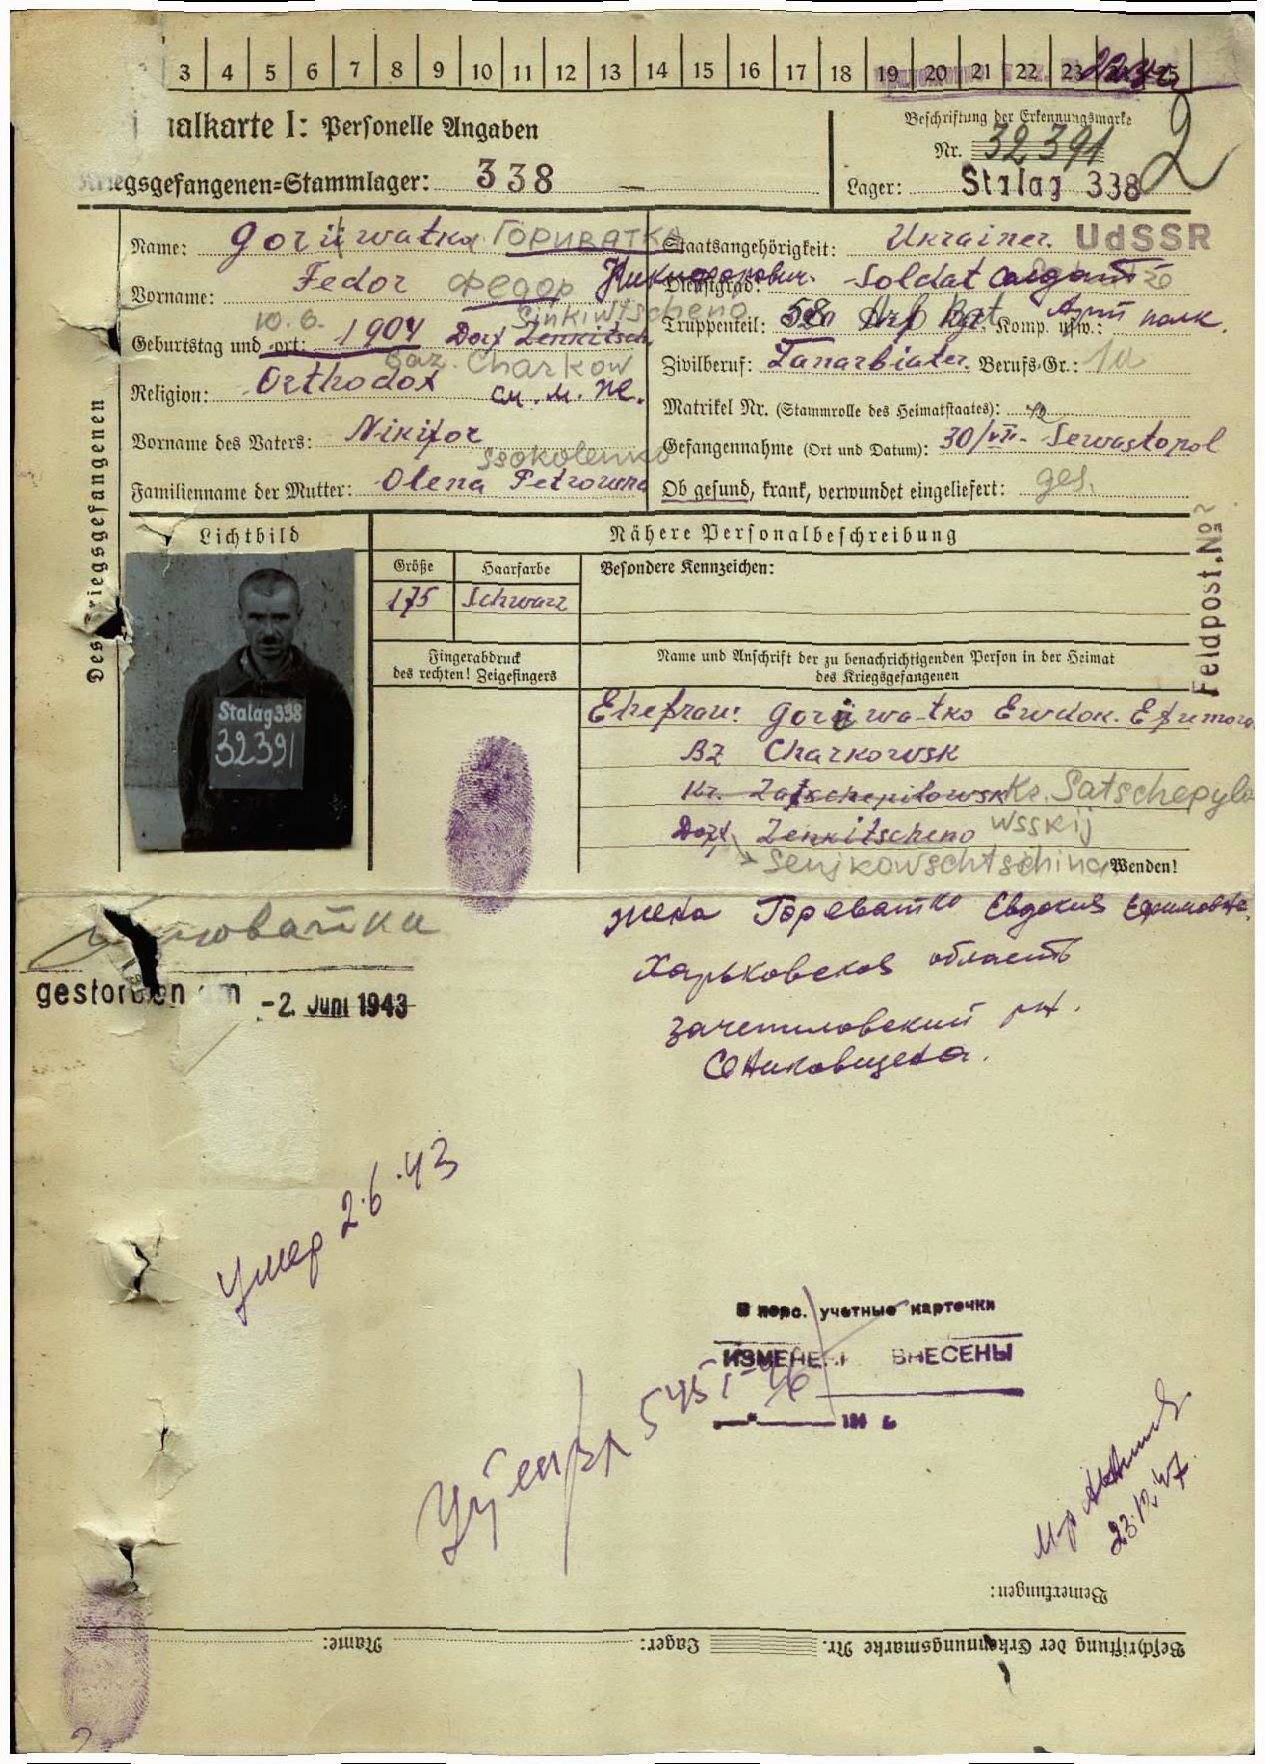 3 4 5 6 7 8 9 10 11 12 13 14 15 16 17 18 19 20 21 22 23
nalkarte I: Personelle Angaben
Beschriftung der Erkennungsmarke
Nr. 32391
2
Kriegsgefangenen=Stammlager: 338 —
Lager: Stalag 338
Des Kriegsgefangenen
Name: Goriwatka ГОРИВАТКА
Staatsangehörigkeit: Ukrainer. UdSSR
Vorname: Fedor Федор Никифорович
Dienstgrad: Soldat солдат
Geburtstag und =ort: 10.6. 1904 Dorf Zenkitsch Sinkiwtscheno
Truppenteil: 58 Arf Rgt. Komp. usw.: Арт полк.
Gaz. Charkow
Zivilberuf: Lanarbiater. Berufs=Gr.: 1a
Religion: Orthodox см. м. ж.
Matrikel Nr. (Stammrolle des Heimatstaates):
Vorname des Vaters: Nikifor
Gefangennahme (Ort und Datum): 30/VII- Sewastopol
Ssokolenko
Familienname der Mutter: Olena Petrowna
Ob gesund, krank, verwundet eingeliefert: ges.
Feldpost.№2
Lichtbild
Nähere Personalbeschreibung
Größe Haarfarbe Besondere Kennzeichen:
175 Schwarz
Fingerabdruck
des rechten! Zeigefingers
Name und Anschrift der zu benachrichtigenden Person in der Heimat
des Kriegsgefangenen
Stalag 338
32391
Ehefrau: Goriwatko Ewdok. Efimowa
Bz Charkowsk
Kr. Zatschepilowsk Kr. Satschepylo
wsskij
Dorf Zenkitscheno
Senjkowschtschina
Wenden!
жена Гореватко Евдокия Ефимовна
Харьковская область
Зачепиловский рн.
Сеньковщена.
gestorben am -2. Juni 1943
Умер 2.6.43
В перс. учетные карточки
ИЗМЕНЕН ВНЕСЕНЫ
194 г.
545
23.12.47
Bemerkungen:
Beschriftung der Erkennungsmarke Nr. Lager: Name: